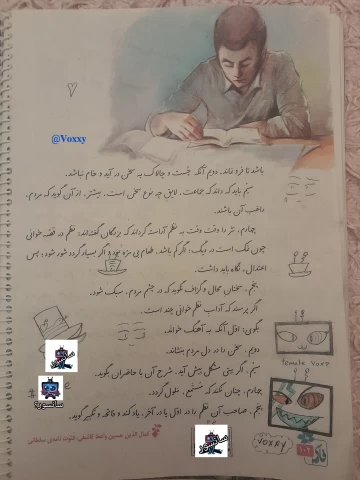 @Voxxy
باشد تا فرو نماند. دویم آنکه چُست و چالاک به سخن در آید و خام نباشد.
سیم باید که داند که جماعت، لایق چه نوع سخن است. بیشتر، از آن گوید که مردم،
راغب آن باشند.
چهارم، نثر را وقت وقت به نظم آراسته گرداند که بزرگان گفته‌اند: نظم در قصه‌خوانی
چون نمک است در دیگ، اگر کم باشد، طعام بی مزه بود و اگر بسیار گردد شور شود؛ پس
اعتدال، نگاه باید داشت.
پنجم، سخنان محال و گزاف نگوید که در چشم مردم، سبک شود.
اگر پرسند که آداب نظم‌خوانی چند است،
بگوی: اوّل آنکه به آهنگ خواند.
دویم، سخن را در دل مردم بنشاند.
سیم، اگر بیتی مشکل پیش آید، شرح آن با حاضران بگوید.
چهارم، چنان نکند که مُستمع، ملول گردد.
پنجم، صاحب آن نظم را در اوّل یا در آخر، یاد کند و فاتحه و تکبیر گوید.
کمال الدین حسین واعظ کاشفی، فتوت نامه‌ی سلطانی
female voxe
VOXXY
سانسور
سانسور
سانسور